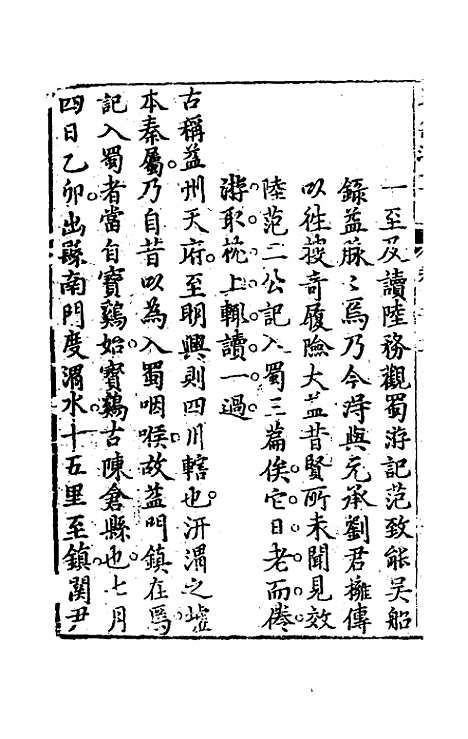 一至及讀陸務觀蜀游記范致能吳船
錄益脉〻焉乃今得與元承劉君擁傳
以徃搜奇履險大益昔賢所未聞見效
陸范二公記入蜀三篇俟它日老而倦
游取枕上輒讀一過
古稱益州天府至明興則四川轄也汧渭之墟
本秦屬乃自昔以為入蜀咽喉故益門鎮在焉
記入蜀者當自寶鷄始寶鷄古陳倉縣也七月
四日乙卯出縣南門度渭水十五里至鎮關尹